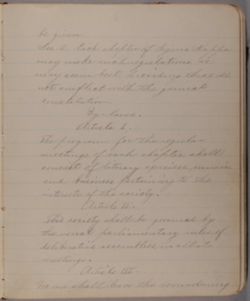 be given.
Sec. 6. Each chapter of Sigma Kappa
may make such regulations as
may seem best, providing they do
not conflict with the general
constitution.
By-laws.
Article I.
The programs for the regular
meetings of each chapter shall
consist of literary exercises, music
and business pertaining to the
interests of the society.
Article II.
The society shall be governed by
the usual parliamentary rules of
deliberative assemblies in all its
meetings.
Article III.